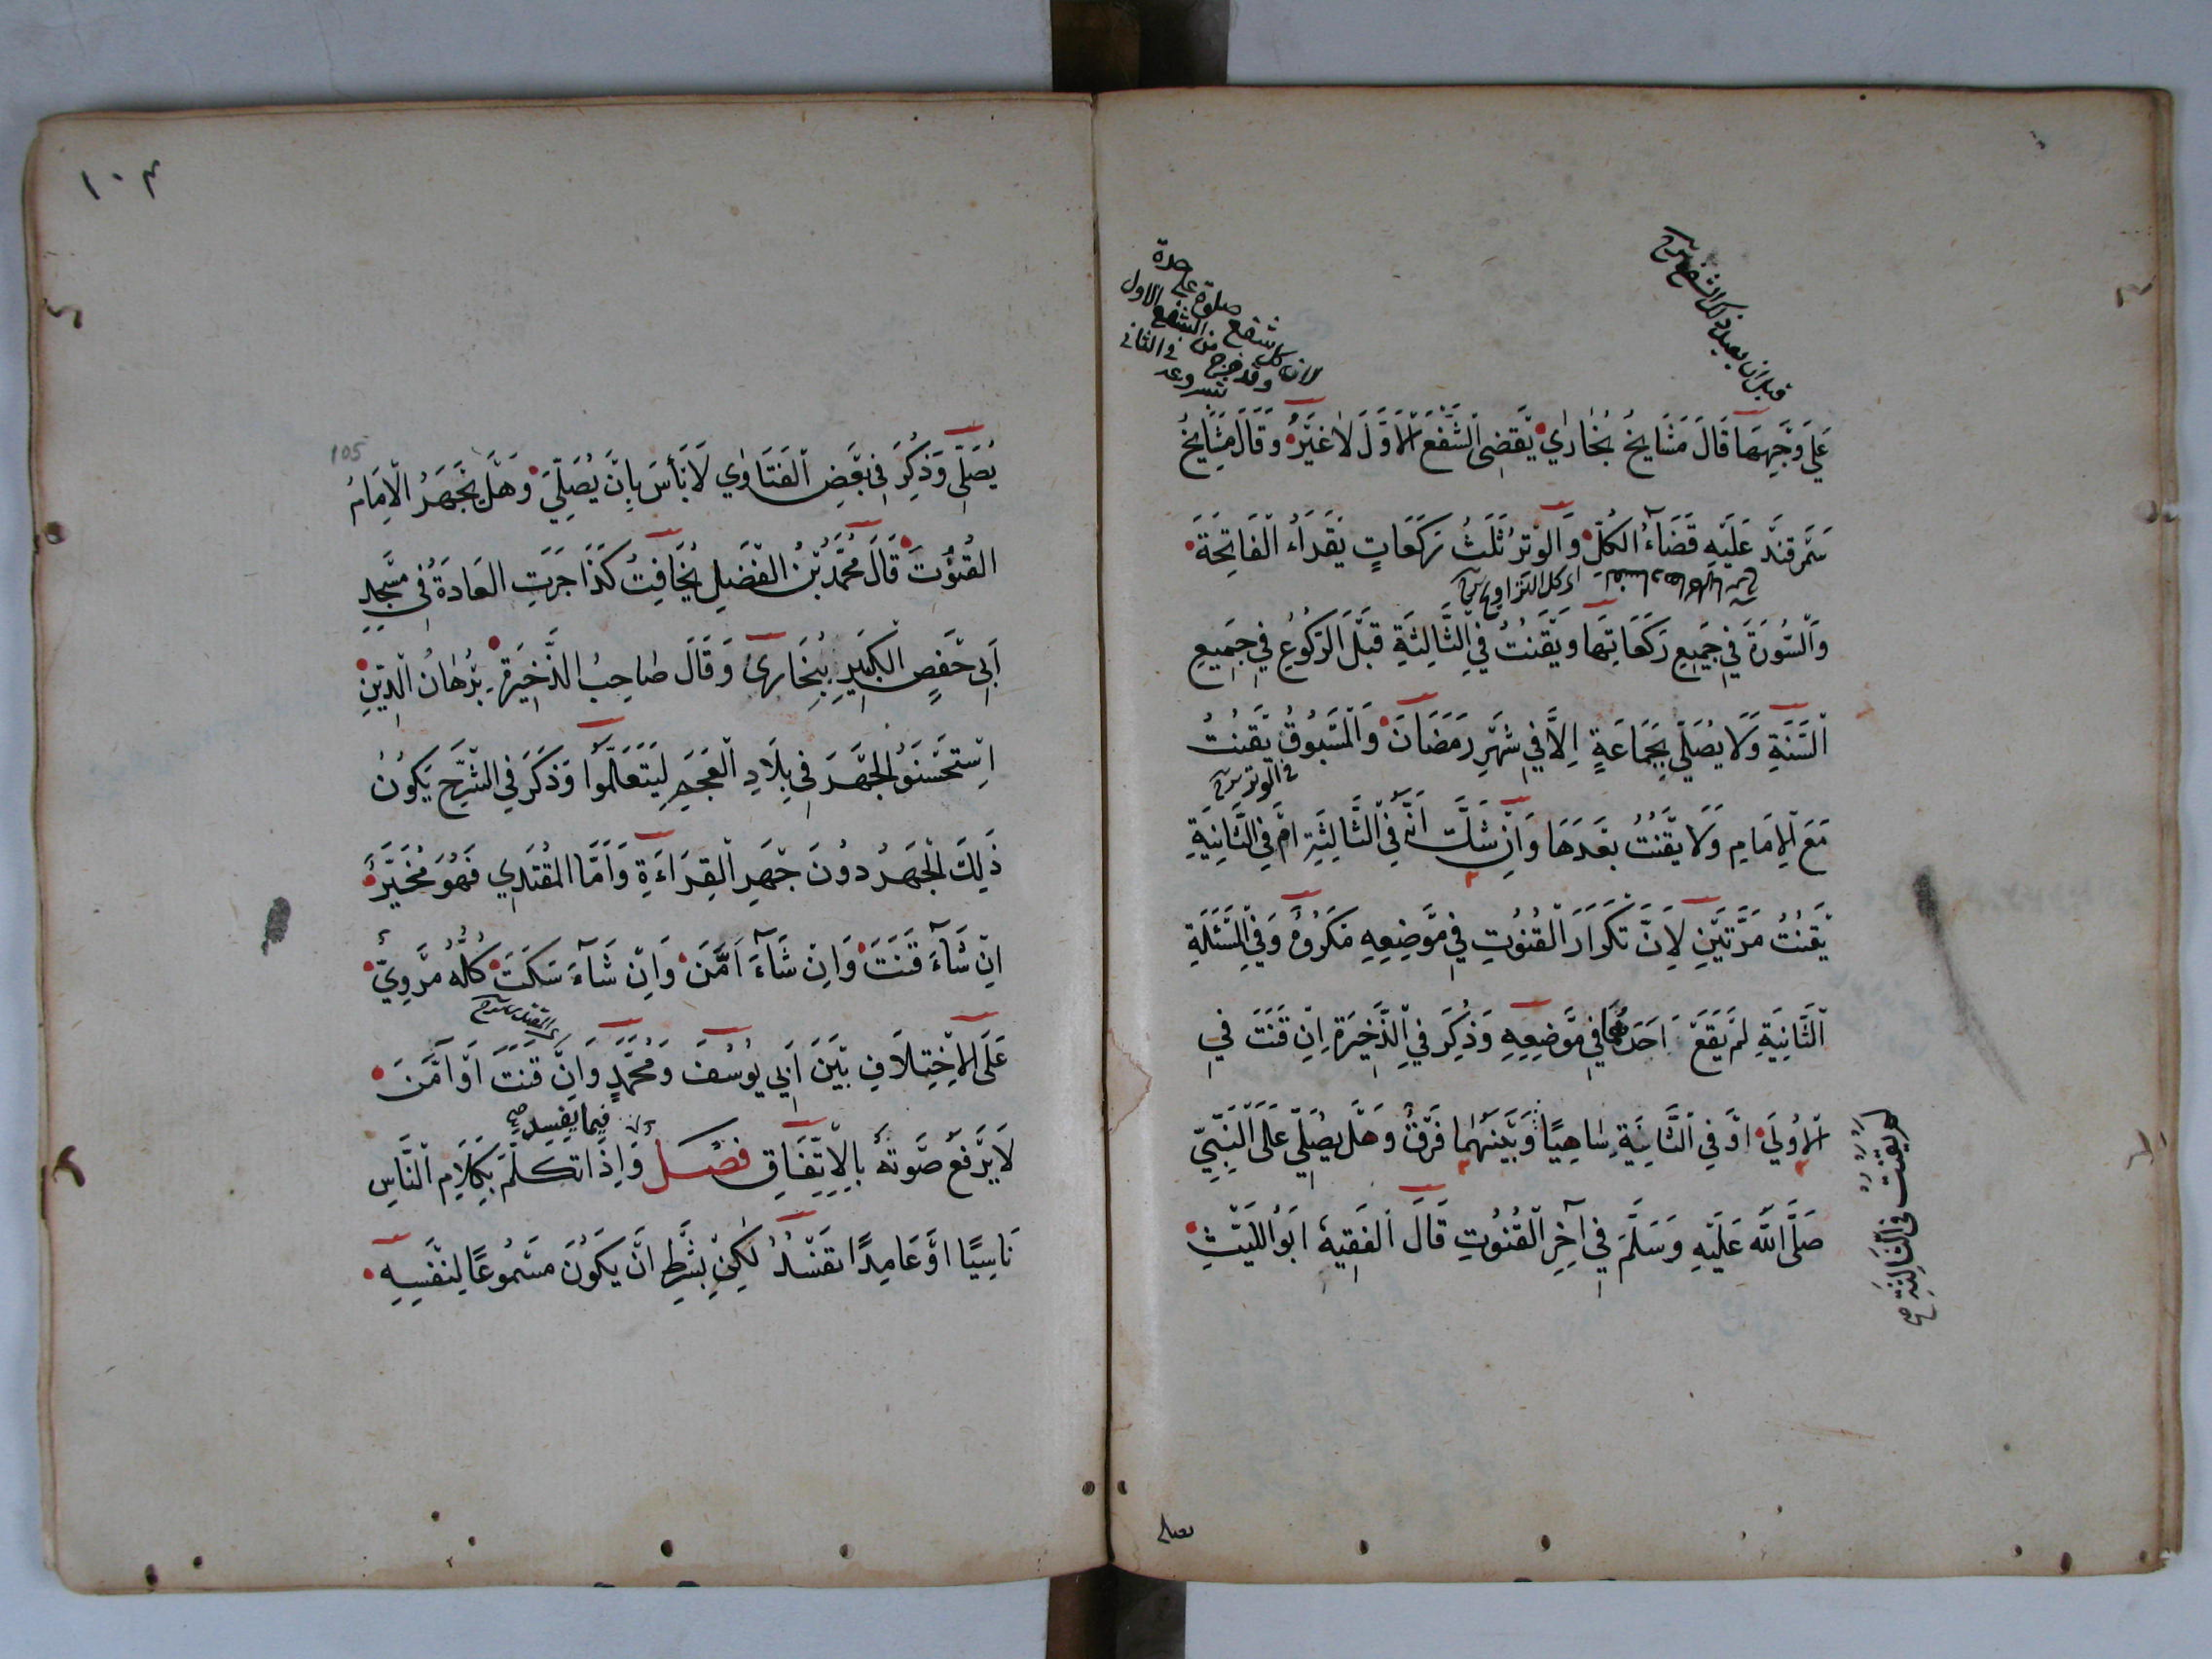 قبل ان يعيد
صلوة على حدة
لان كل شفع
من الشفع الاول
وقد خرج
في الثاني
عَلَي وَجْهِهَا قَالَ مَشَايِخُ بُخَارٰي يَقْضِي الشَّفْعَ الْاَوَّلَ لَا غَيْرُ وَقَالَ مَشَايِخُ
سَمَرْقَنْدَ عَلَيْهِ قَضَآءُ الْكُلِّ وَالْوِتْرُ ثَلٰثُ رَكَعَاتٍ يَقْرَاءُ الْفَاتِحَةَ
وَالسُّورَةَ فِي جَمِيعِ رَكَعَاتِهَا وَيَقْنُتُ فِي الثَّالِثَةِ قَبْلَ الرُّكُوعِ فِي جَمِيعِ
السَّنَةِ وَلَا يُصَلِّي بِجَمَاعَةٍ اِلَّا فِي شَهْرِ رَمَضَانَ وَالْمَسْبُوقُ يَقْنُتُ
في الوتر
مَعَ الْاِمَامِ وَلَا يَقْنُتُ بَعْدَهَا وَاِنْ شَكَّ اَنَّهُ فِي الثَّالِثَةِ اَمْ فِي الثَّانِيَةِ
يَقْنُتُ مَرَّتَيْنِ لِاَنَّ تَكْرَارَ الْقُنُوتِ فِي مَوْضِعِهِ مَكْرُوهٌ وَفِي الْمَسْئَلَةِ
الثَّانِيَةِ لَمْ يَقَعْ اَحَدُهُمَا فِي مَوْضِعِهِ وَذُكِرَ فِي الذَّخِيرَةِ اِنْ قَنَتَ فِي
الْاُولَي اَوْ فِي الثَّانِيَةِ سَاهِيًا وَبَيْنَهُمَا فَرْقٌ وَهَلْ يُصَلِّي عَلَى النَّبِيِّ
صَلَّى اللهُ عَلَيْهِ وَسَلَّمَ فِي آخِرِ الْقُنُوتِ قَالَ الْفَقِيهُ اَبُو اللَّيْثِ
لم يقنت في الثالثة صح
يصلي
١٠٤
105
يُصَلِّي وَذُكِرَ فِي بَعْضِ الْفَتَاوٰي لَا بَأْسَ بِاَنْ يُصَلِّيَ وَهَلْ يَجْهَرُ الْاِمَامُ
الْقُنُوتَ قَالَ مُحَمَّدُ بْنُ الْفَضْلِ يُخَافِتُ كَذَا جَرَتِ الْعَادَةُ فِي مَسْجِدِ
اَبِي حَفْصٍ الْكَبِيرِ بِبُخَارٰى وَقَالَ صَاحِبُ الذَّخِيرَةِ بُرْهَانُ الدِّينِ
اِسْتَحْسَنُوا الْجَهْرَ فِي بِلَادِ الْعَجَمِ لِيَتَعَلَّمُوا وَذَكَرَ فِي الشَّرْحِ يَكُونُ
ذٰلِكَ الْجَهْرُ دُونَ جَهْرِ الْقِرَاءَةِ وَاَمَّا الْمُقْتَدِي فَهُوَ مُخَيَّرٌ
اِنْ شَآءَ قَنَتَ وَاِنْ شَآءَ اَمَّنَ وَاِنْ شَآءَ سَكَتَ كُلُّهُ مَرْوِيٌّ
عَلَى الْاِخْتِلَافِ بَيْنَ اَبِي يُوسُفَ وَمُحَمَّدٍ وَاِنْ قَنَتَ اَوْ اَمَّنَ
فيما يفسد صح
لَا يَرْفَعُ صَوْتَهُ بِالْاِتِّفَاقِ فصل وَاِذَا تَكَلَّمَ بِكَلَامِ النَّاسِ
نَاسِيًا اَوْ عَامِدًا تَفْسُدُ لٰكِنْ بِشَرْطِ اَنْ يَكُونَ مَسْمُوعًا لِنَفْسِهِ